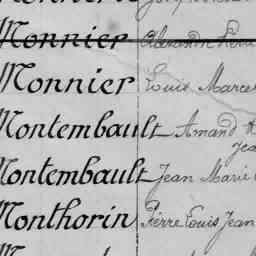 Monnier
Monnier Louis Marcel
Montembault Amand
Jea
Montembault Jean Marie
Monthorin Pierre Louis Jean